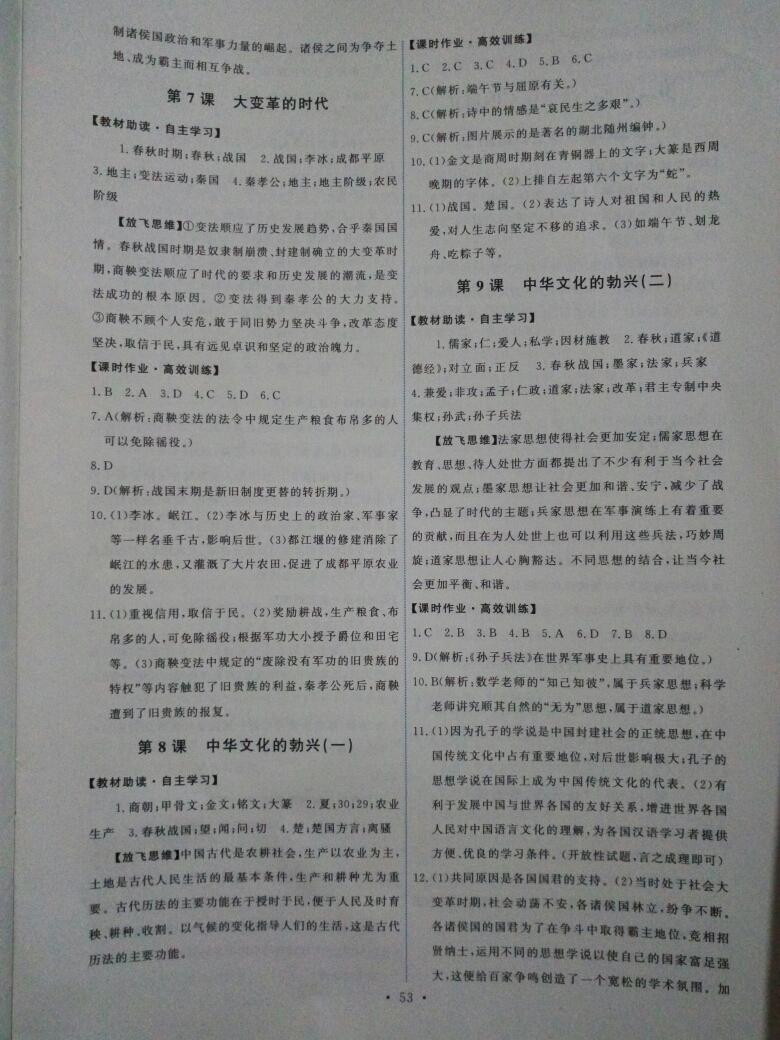 制诸侯国政治和军事力量的崛起。诸侯之间为争夺土
地、成为霸主而相互争战。
第7课 大变革的时代
【教材助读·自主学习】
1.春秋时期;春秋;战国 2.战国;李冰;成都平原
3.地主;变法运动;秦国 4.秦孝公;地主;地主阶级;农民
阶级
【放飞思维】①变法顺应了历史发展趋势,合乎秦国国
情。春秋战国时期是奴隶制崩溃、封建制确立的大变革时
期,商鞅变法顺应了时代的要求和历史发展的潮流,是变
法成功的根本原因。②变法得到秦孝公的大力支持。
③商鞅不顾个人安危,敢于同旧势力坚决斗争,改革态度
坚决,取信于民,具有远见卓识和坚定的政治魄力。
【课时作业·高效训练】
1.B 2.A 3.D 4.C 5.D 6.C
7.A(解析:商鞅变法的法令中规定生产粮食布帛多的人
可以免除徭役。)
8.D
9.D(解析:战国末期是新旧制度更替的转折期。)
10.(1)李冰。岷江。(2)李冰与历史上的政治家、军事家
等一样名垂千古,影响后世。(3)都江堰的修建消除了
岷江的水患,又灌溉了大片农田,促进了成都平原农业
的发展。
11.(1)重视信用,取信于民。(2)奖励耕战,生产粮食、布
帛多的人,可免除徭役;根据军功大小授予爵位和田宅
等。(3)商鞅变法中规定的“废除没有军功的旧贵族的
特权”等内容触犯了旧贵族的利益,秦孝公死后,商鞅
遭到了旧贵族的报复。
第8课 中华文化的勃兴(一)
【教材助读·自主学习】
1.商朝;甲骨文;金文;铭文;大篆 2.夏;30;29;农业
生产 3.春秋战国;望;闻;问;切 4.楚;楚国方言;离骚
【放飞思维】中国古代是农耕社会,生产以农业为主,
土地是古代人民生活的最基本条件,生产和耕种尤为重
要。古代历法的主要功能在于授时于民,便于人民及时育
秧、耕种、收割。以气候的变化指导人们的生活,这是古代
历法的主要功能。
【课时作业·高效训练】
1.C 2.C 3.C 4.D 5.B 6.C
7.C(解析:端午节与屈原有关。)
8.C(解析:诗中的情感是“哀民生之多艰”。)
9.C(解析:图片展示的是著名的湖北随州编钟。)
10.(1)金文是商周时期刻在青铜器上的文字;大篆是西周
晚期的字体。(2)上排自左起第六个文字为“蛇”。
11.(1)战国。楚国。(2)表达了诗人对祖国和人民的热
爱,对人生志向坚定不移的追求。(3)如端午节、划龙
舟、吃粽子等。
第9课 中华文化的勃兴(二)
【教材助读·自主学习】
1.儒家;仁;爱人;私学;因材施教 2.春秋;道家;《道
德经》;对立面;正反 3.春秋战国;墨家;法家;兵家
4.兼爱;非攻;孟子;仁政;道家;法家;改革;君主专制中央
集权;孙武;孙子兵法
【放飞思维】法家思想使得社会更加安定;儒家思想在
教育、思想、待人处世方面都提出了不少有利于当今社会
发展的观点;墨家思想让社会更加和谐、安宁,减少了战
争,凸显了时代的主题;兵家思想在军事演练上有着重要
的贡献,而且在为人处世上也可以利用这些兵法,巧妙周
旋;道家思想让人心胸豁达。不同思想的结合,让当今社
会更加平衡、和谐。
【课时作业·高效训练】
1.C 2.B 3.B 4.B 5.A 6.D 7.B 8.D
9.D(解析:《孙子兵法》在世界军事史上具有重要地位。)
10.B(解析:数学老师的“知己知彼”,属于兵家思想;科学
老师讲究顺其自然的“无为”思想,属于道家思想。)
11.(1)因为孔子的学说是中国封建社会的正统思想,在中
国传统文化中占有重要地位,对后世影响极大;孔子的
思想学说在国际上成为中国传统文化的代表。(2)有
利于发展中国与世界各国的友好关系,增进世界各国
人民对中国语言文化的理解,为各国汉语学习者提供
方便、优良的学习条件。(开放性试题,言之成理即可)
12.(1)共同原因是各国国君的支持。(2)当时处于社会大
变革时期,社会动荡不安,各诸侯国林立,纷争不断。
各诸侯国的国君为了在争斗中取得霸主地位,竞相招
贤纳士,运用不同的思想学说以使自己的国家富足强
大,这便给百家争鸣创造了一个宽松的学术氛围。加
· 53 ·